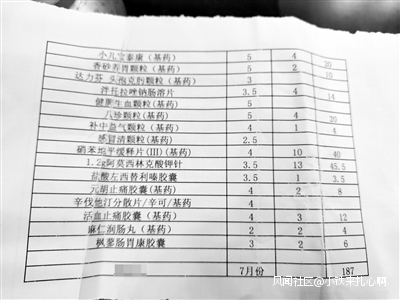 小儿宝泰康(基药) 5 4 20
香砂养胃颗粒(基药) 5 2 10
达力芬 头孢克肟颗粒(基药) 3
泮托拉唑钠肠溶片 3.5 4 14
健脾生血颗粒(基药) 5
八珍颗粒(基药) 5 4 20
补中益气颗粒(基药) 4 1 4
感冒清颗粒(基药) 2.5
硝苯地平缓释片(III)(基药) 4 10 40
1.2g阿莫西林克酸钾针 3.5 13 45.5
盐酸左西替利嗪胶囊 3.5 1 3.5
元胡止痛胶囊(基药) 4 2 8
辛伐他汀分散片/辛可/基药 4
活血止痛胶囊(基药) 4 3 12
麻仁润肠丸(基药) 2 2 4
枫蓼肠胃康胶囊 3 2 6
7月份 187
风闻社区@小铁柴扎心啊